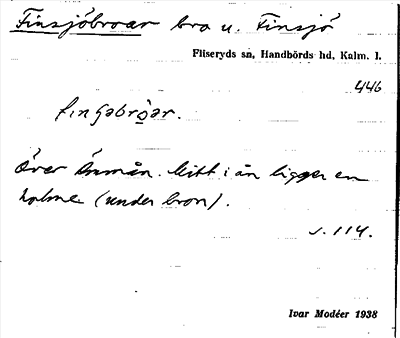 Finsjöbroar bro u. Finsjö
Fliseryds sn, Handbörds hd, Kalm. l.
446
finʃabrǫar.
Över Ämmån. Mitt i ån ligger en
holme (under bron).
s. 114.
Ivar Modéer 1938